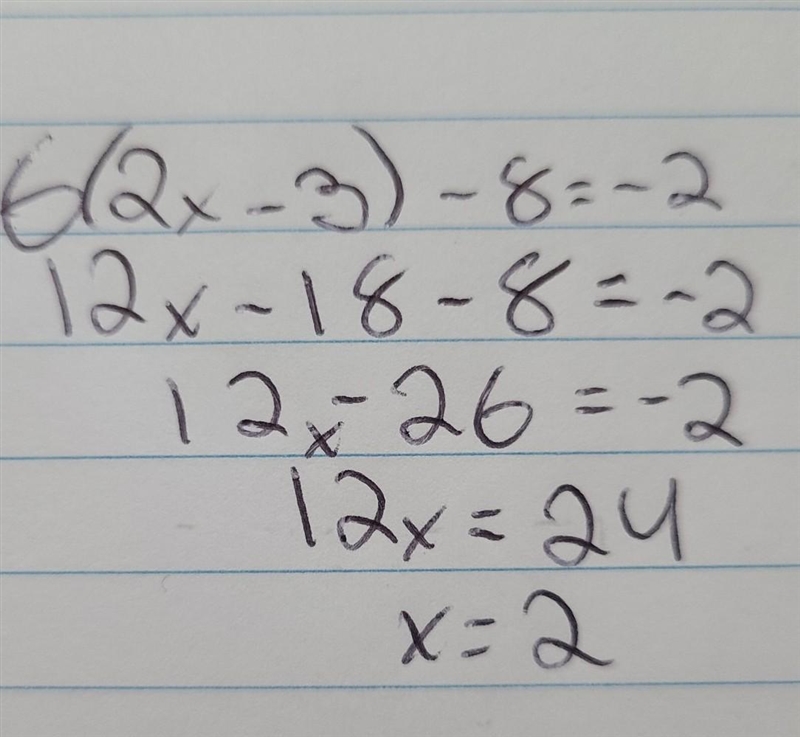 6(2x - 3) - 8 = -2
12x - 18 - 8 = -2
12x - 26 = -2
12x = 24
x = 2